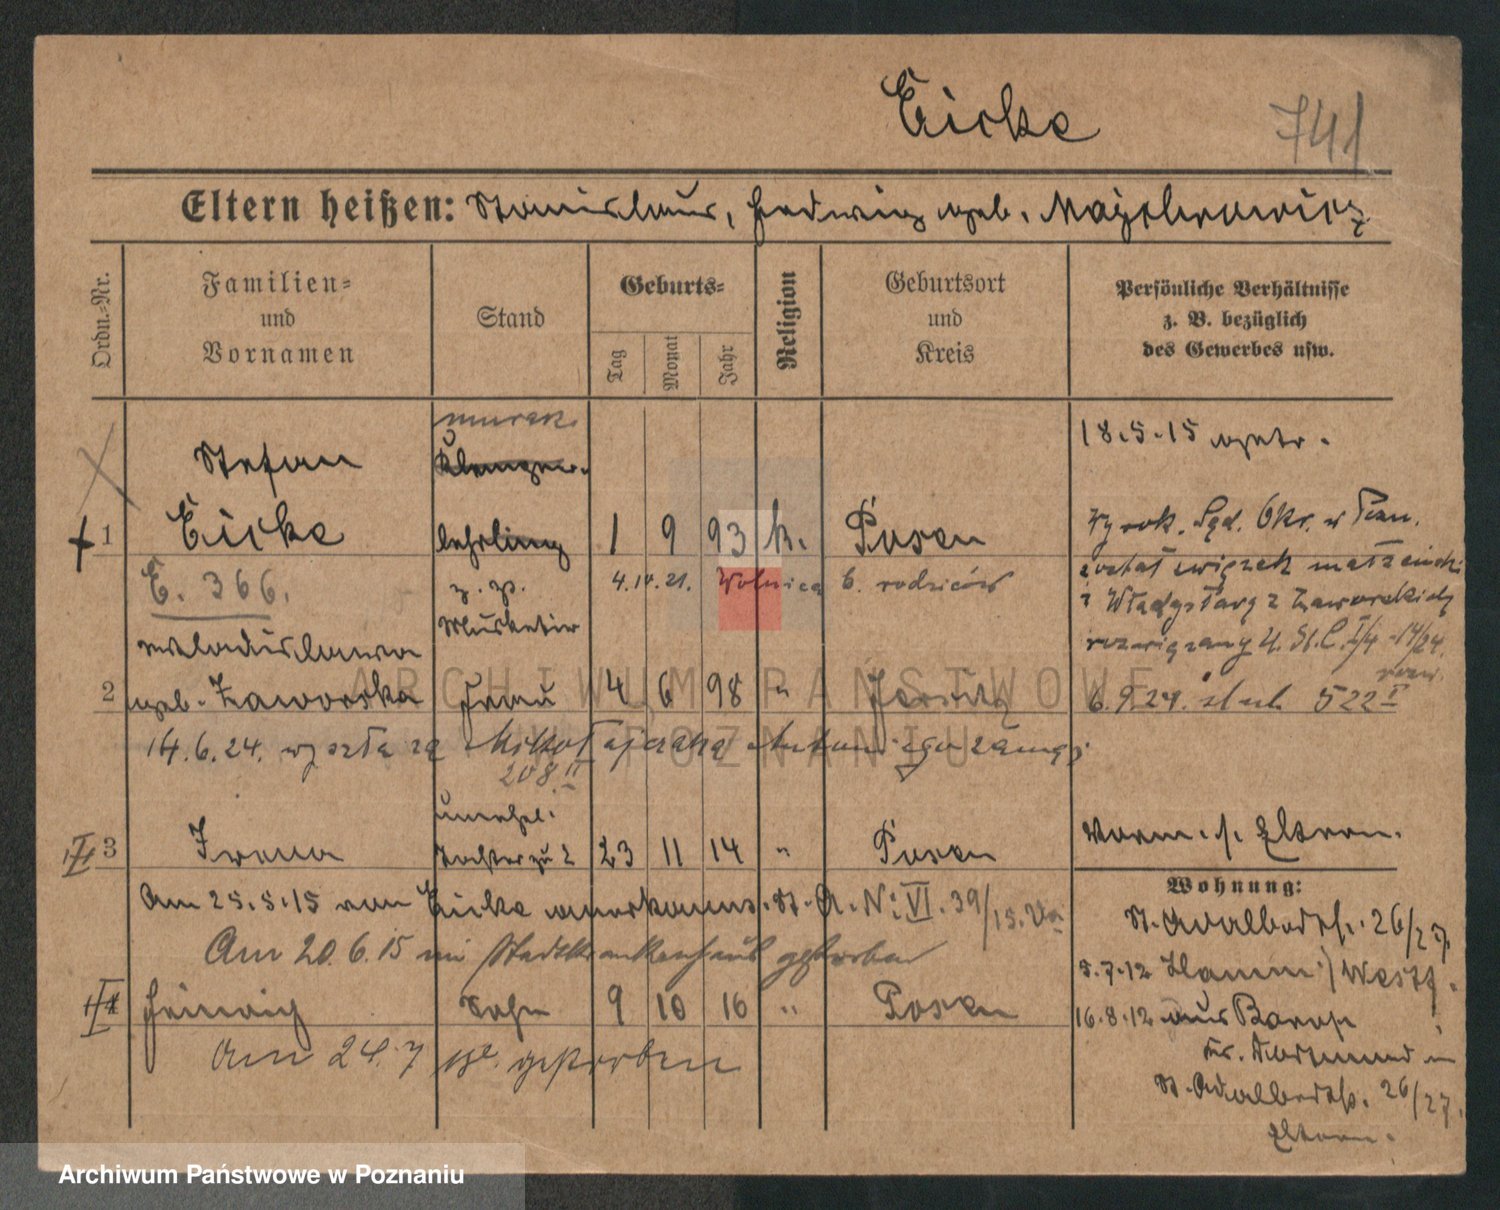 Eicke 741
Eltern heißen: Stanislaus, Hedwig geb. Majchrowicz
Ordn.-Nr.
Familien-
und
Vornamen
Stand
Geburts-
Tag
Monat
Jahr
Religion
Geburtsort
und
Kreis
Persönliche Verhältnisse
z. B. bezüglich
des Gewerbes usw.
murarz
Stefan Klempner-
18.5.15 getr.
1 Eicke lehrling 1 9 93 k. Posen
Wyrok. Sąd. Okr. w Pozn.
E. 366. z. Zt. 4.10.21. Wolnica b. rodziców
został związek małżeński
Musketier
z Władysławą z Zaworskich
Wladislawa
rozwiązany 4. St. C. I/4 -14/24.
rozw.
2 geb. Zaworska Frau 4 6 98 " Jersitz
6.9.24. slub 522 II
14.6.24. wyszła za Mikołajczaka Antoniego zamąż
208 II
unehel.
3 Irena Tochter zu 2 23 11 14 " Posen
Vorm. s. Eltern.
Wohnung:
Am 25.5.15 von Eicke anerkannt. St. A. N: VI. 39/15.
St. Adalbertstr. 26/27.
Am 20.6.15 im Stadtkrankenhaus gestorben
5.7.12 Hamm / Westf.
4 Heinrich Sohn 9 10 16 " Posen
16.8.12 aus Barop
Am 24.7 gestorben
Kr. Dortmund in
St. Adalbertstr. 26/27.
Eltern.
ARCHIWUM PAŃSTWOWE
W POZNANIU
Archiwum Państwowe w Poznaniu